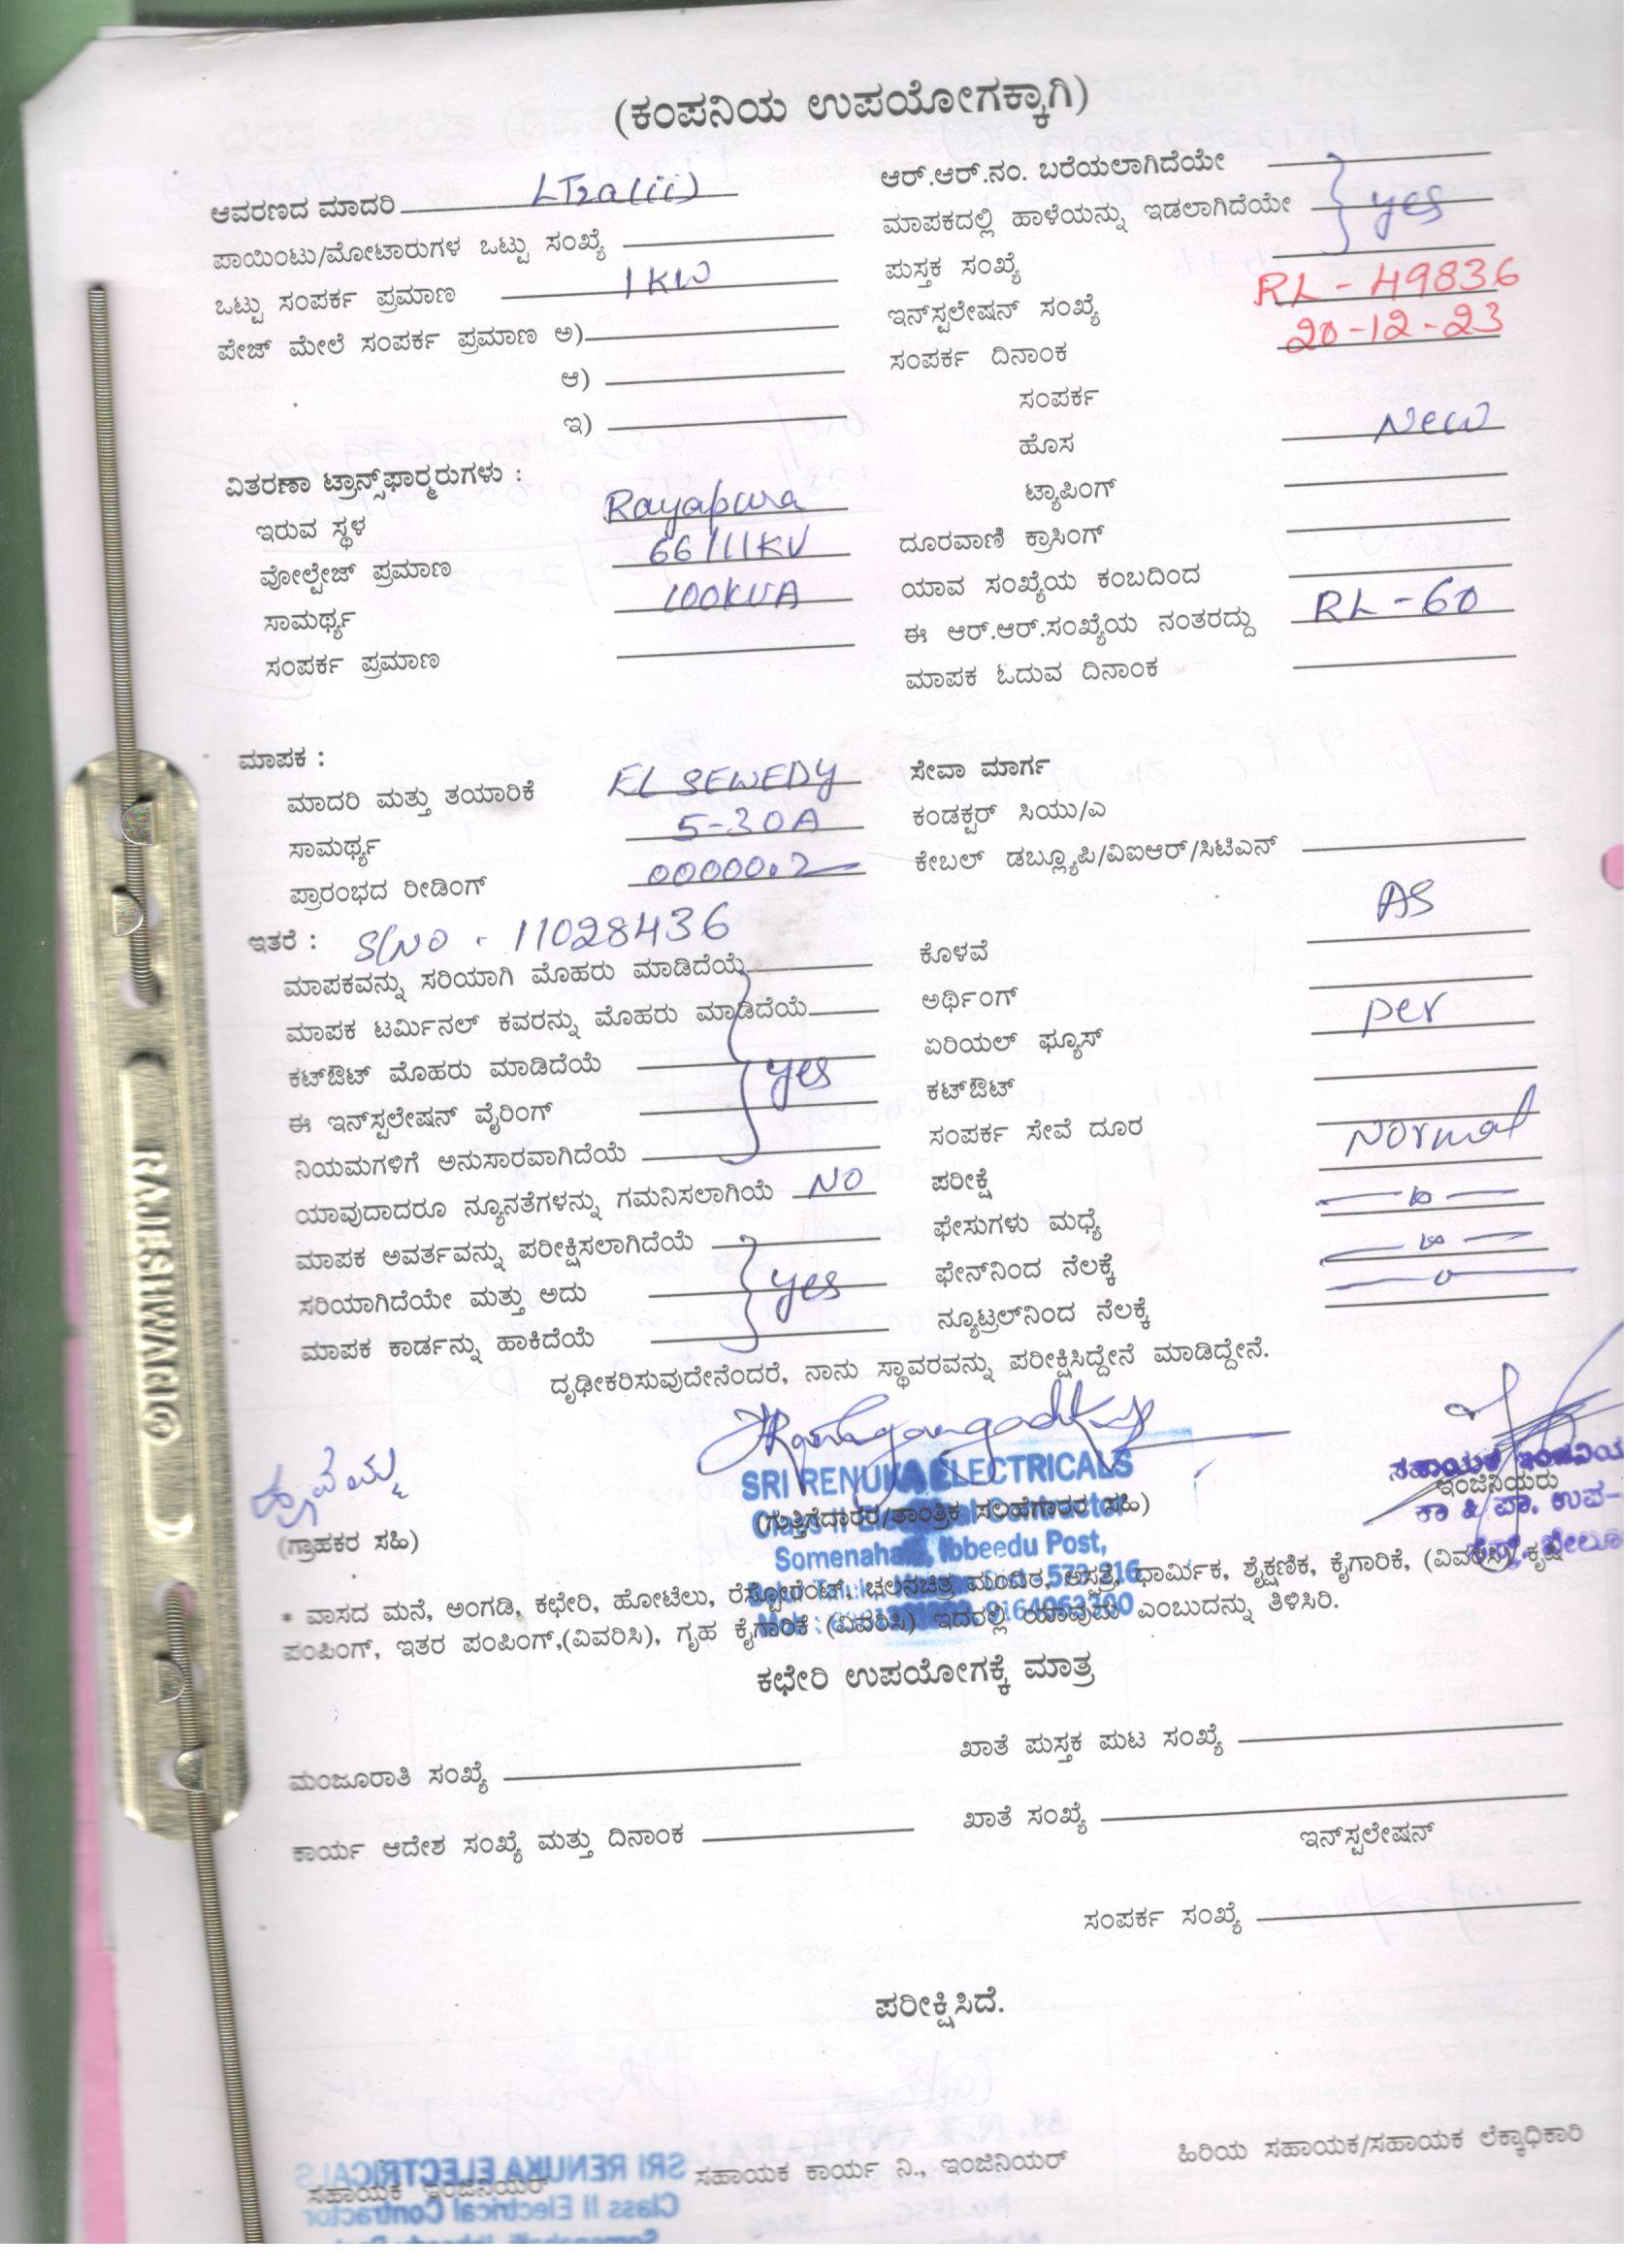 (ಕಂಪನಿಯ ಉಪಯೋಗಕ್ಕಾಗಿ)
ಆವರಣದ ಮಾದರಿ LT2a(iii)
ಪಾಯಿಂಟು/ಮೋಟಾರುಗಳ ಒಟ್ಟು ಸಂಖ್ಯೆ
ಒಟ್ಟು ಸಂಪರ್ಕ ಪ್ರಮಾಣ 1KW
ಪೇಜ್ ಮೇಲೆ ಸಂಪರ್ಕ ಪ್ರಮಾಣ ಅ)
ಆ)
ಇ)
ಆರ್.ಆರ್.ನಂ. ಬರೆಯಲಾಗಿದೆಯೇ
ಮಾಪಕದಲ್ಲಿ ಹಾಳೆಯನ್ನು ಇಡಲಾಗಿದೆಯೇ yes
ಪುಸ್ತಕ ಸಂಖ್ಯೆ
ಇನ್‌ಸ್ಟಲೇಷನ್ ಸಂಖ್ಯೆ RL-49836
ಸಂಪರ್ಕ ದಿನಾಂಕ 20-12-23
ಸಂಪರ್ಕ
ಹೊಸ New
ಟ್ಯಾಪಿಂಗ್
ದೂರವಾಣಿ ಕ್ರಾಸಿಂಗ್
ಯಾವ ಸಂಖ್ಯೆಯ ಕಂಬದಿಂದ
ಈ ಆರ್.ಆರ್.ಸಂಖ್ಯೆಯ ನಂತರದ್ದು RL-60
ಮಾಪಕ ಓದುವ ದಿನಾಂಕ
ವಿತರಣಾ ಟ್ರಾನ್ಸ್‌ಫಾರ್‍ಮರುಗಳು :
ಇರುವ ಸ್ಥಳ Rayapura
ವೋಲ್ಟೇಜ್ ಪ್ರಮಾಣ 66/11KV
ಸಾಮರ್ಥ್ಯ 100KVA
ಸಂಪರ್ಕ ಪ್ರಮಾಣ
ಮಾಪಕ :
ಮಾದರಿ ಮತ್ತು ತಯಾರಿಕೆ EL SEWEDY
ಸಾಮರ್ಥ್ಯ 5-30A
ಪ್ರಾರಂಭದ ರೀಡಿಂಗ್ 00000.2
ಇತರೆ : S/NO - 11028436
ಮಾಪಕವನ್ನು ಸರಿಯಾಗಿ ಮೊಹರು ಮಾಡಿದೆಯೆ
ಮಾಪಕ ಟರ್ಮಿನಲ್ ಕವರನ್ನು ಮೊಹರು ಮಾಡಿದೆಯೆ
ಕಟ್‌ಔಟ್ ಮೊಹರು ಮಾಡಿದೆಯೆ yes
ಈ ಇನ್‌ಸ್ಟಲೇಷನ್ ವೈರಿಂಗ್
ನಿಯಮಗಳಿಗೆ ಅನುಸಾರವಾಗಿದೆಯೆ
ಯಾವುದಾದರೂ ನ್ಯೂನತೆಗಳನ್ನು ಗಮನಿಸಲಾಗಿಯೆ NO
ಮಾಪಕ ಅವರ್ತವನ್ನು ಪರೀಕ್ಷಿಸಲಾಗಿದೆಯೆ
ಸರಿಯಾಗಿದೆಯೇ ಮತ್ತು ಅದು yes
ಮಾಪಕ ಕಾರ್ಡನ್ನು ಹಾಕಿದೆಯೆ
ಸೇವಾ ಮಾರ್ಗ
ಕಂಡಕ್ಟರ್ ಸಿಯು/ಎ
ಕೇಬಲ್ ಡಬ್ಲ್ಯೂಪಿ/ವಿಐಆರ್/ಸಿಟಿಎನ್
AS
ಕೊಳವೆ
ಅರ್ಥಿಂಗ್ per
ಏರಿಯಲ್ ಫ್ಯೂಸ್
ಕಟ್‌ಔಟ್
ಸಂಪರ್ಕ ಸೇವೆ ದೂರ Normal
ಪರೀಕ್ಷೆ
ಫೇಸುಗಳು ಮಧ್ಯೆ
ಫೇನ್‌ನಿಂದ ನೆಲಕ್ಕೆ
ನ್ಯೂಟ್ರಲ್‌ನಿಂದ ನೆಲಕ್ಕೆ
ದೃಢೀಕರಿಸುವುದೇನೆಂದರೆ, ನಾನು ಸ್ಥಾವರವನ್ನು ಪರೀಕ್ಷಿಸಿದ್ದೇನೆ ಮಾಡಿದ್ದೇನೆ.
SRI RENUKA ELECTRICALS
(ಗ್ರಾಹಕರ ಸಹಿ)
(ಗುತ್ತಿಗೆದಾರರ/ತಾಂತ್ರಿಕ ಸಲಹೆಗಾರರ ಸಹಿ)
Somenahalli, Ibbeedu Post,
ಸಹಾಯಕ
ಇಂಜಿನಿಯರು
ಕಾ & ಪಾ, ಉಪ-
* ವಾಸದ ಮನೆ, ಅಂಗಡಿ, ಕಛೇರಿ, ಹೋಟೆಲು, ರೆಸ್ಟೋರೆಂಟ್, ಚಲನಚಿತ್ರ ಮಂದಿರ, ಅಸ್ಪತ್ರೆ, ಧಾರ್ಮಿಕ, ಶೈಕ್ಷಣಿಕ, ಕೈಗಾರಿಕೆ, (ವಿವರಿಸಿ) ಕೃಷಿ
ಪಂಪಿಂಗ್, ಇತರ ಪಂಪಿಂಗ್,(ವಿವರಿಸಿ), ಗೃಹ ಕೈಗಾರಿಕೆ (ವಿವರಿಸಿ) ಇದರಲ್ಲಿ ಯಾವುದು ಎಂಬುದನ್ನು ತಿಳಿಸಿರಿ.
ಕಛೇರಿ ಉಪಯೋಗಕ್ಕೆ ಮಾತ್ರ
ಮಂಜೂರಾತಿ ಸಂಖ್ಯೆ
ಖಾತೆ ಪುಸ್ತಕ ಪುಟ ಸಂಖ್ಯೆ
ಕಾರ್ಯ ಆದೇಶ ಸಂಖ್ಯೆ ಮತ್ತು ದಿನಾಂಕ
ಖಾತೆ ಸಂಖ್ಯೆ
ಇನ್‌ಸ್ಟಲೇಷನ್
ಸಂಪರ್ಕ ಸಂಖ್ಯೆ
ಪರೀಕ್ಷಿಸಿದೆ.
ಸಹಾಯಕ ಇಂಜಿನಿಯರ್
ಸಹಾಯಕ ಕಾರ್ಯ ನಿ., ಇಂಜಿನಿಯರ್
ಹಿರಿಯ ಸಹಾಯಕ/ಸಹಾಯಕ ಲೆಕ್ಕಾಧಿಕಾರಿ
RAJESHWARI